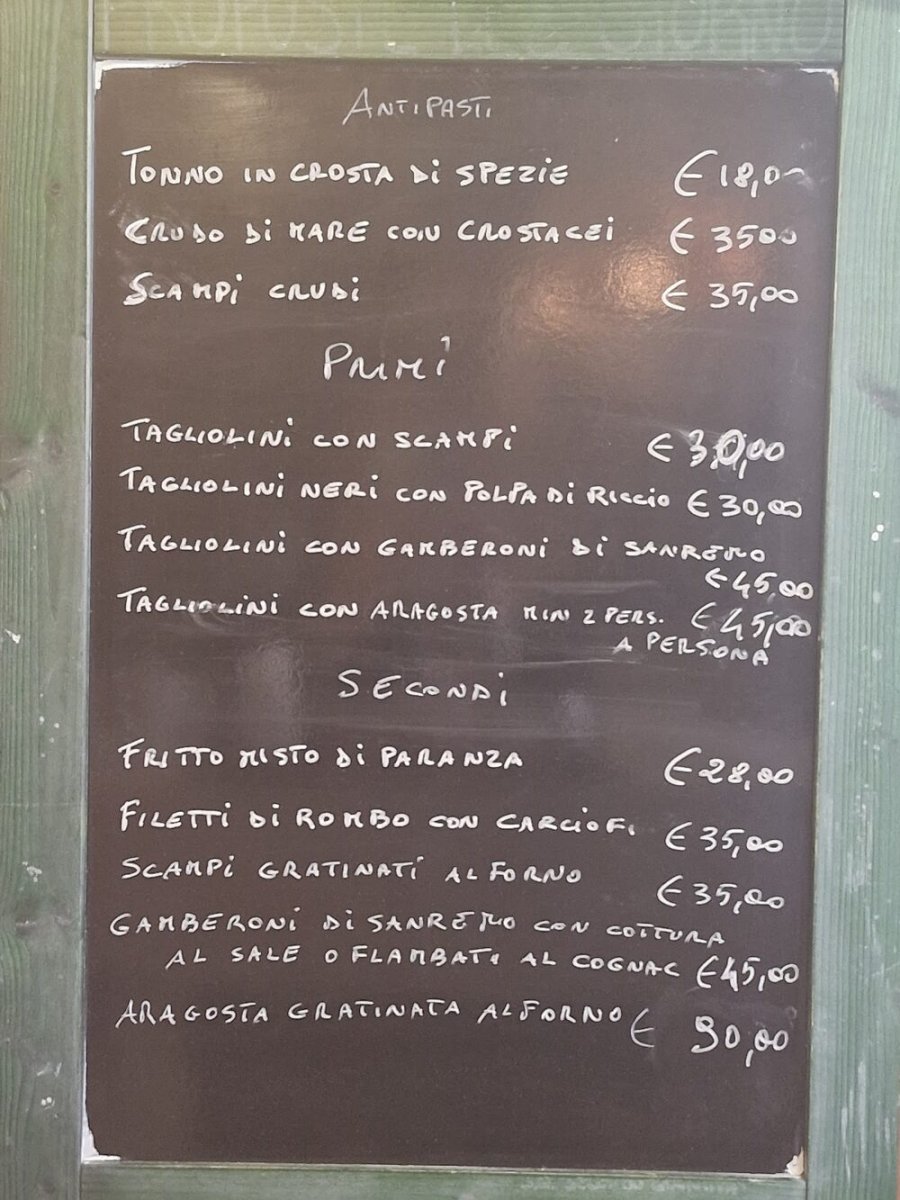 ANTIPASTI
TONNO IN CROSTA DI SPEZIE €18,00
CRUDO DI MARE CON CROSTACEI € 3500
SCAMPI CRUDI € 35,00
PRIMI
TAGLIOLINI CON SCAMPI € 30,00
TAGLIOLINI NERI CON POLPA DI RICCIO € 30,00
TAGLIOLINI CON GAMBERONI DI SANREMO
€45,00
TAGLIOLINI CON ARAGOSTA MIN 2 PERS. €45,00
A PERSONA
SECONDI
FRITTO MISTO DI PARANZA €28,00
FILETTI DI ROMBO CON CARCIOFI € 35,00
SCAMPI GRATINATI AL FORNO € 35,00
GAMBERONI DI SANREMO CON COTTURA
AL SALE O FLAMBATI AL COGNAC €45,00
ARAGOSTA GRATINATA AL FORNO € 90,00